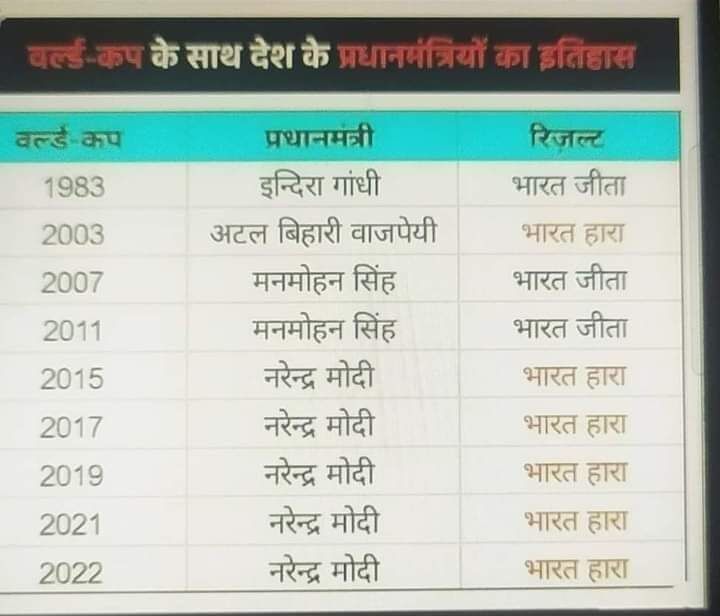 वर्ल्ड-कप के साथ देश के प्रधानमंत्रियों का इतिहास
वर्ल्ड-कप प्रधानमंत्री रिज़ल्ट
1983 इन्दिरा गांधी भारत जीता
2003 अटल बिहारी वाजपेयी भारत हारा
2007 मनमोहन सिंह भारत जीता
2011 मनमोहन सिंह भारत जीता
2015 नरेन्द्र मोदी भारत हारा
2017 नरेन्द्र मोदी भारत हारा
2019 नरेन्द्र मोदी भारत हारा
2021 नरेन्द्र मोदी भारत हारा
2022 नरेन्द्र मोदी भारत हारा